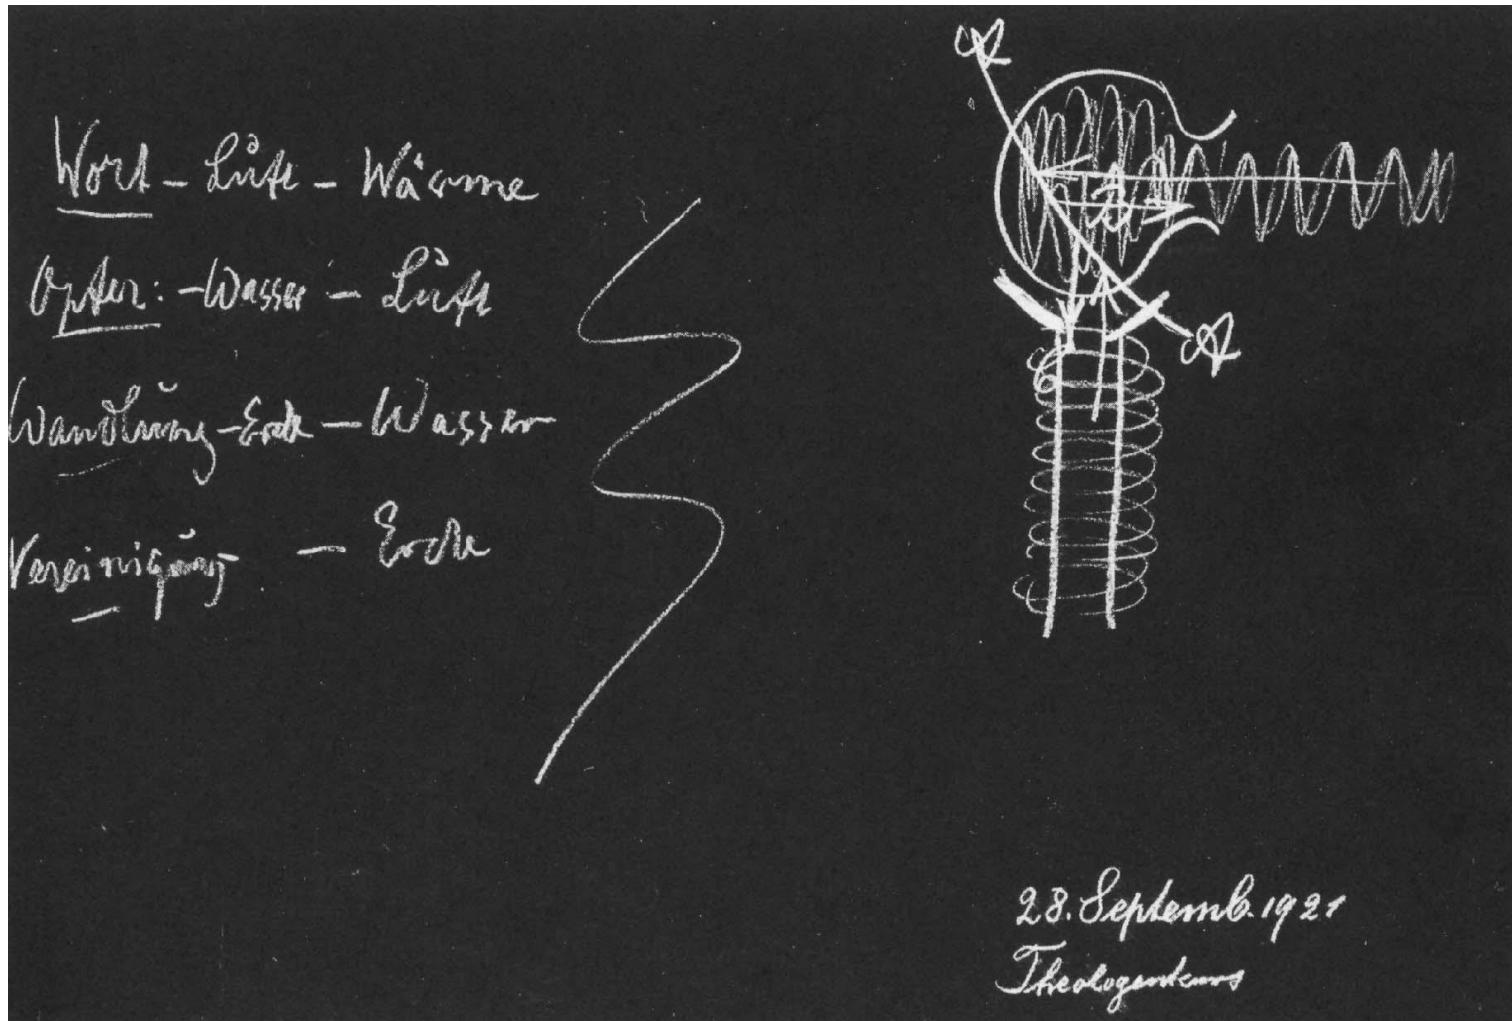 Wort - Luft - Wärme
Opfer: - Wasser - Luft
Wandlung - Erde - Wasser
Vereinigung - Erde
a
28. Septemb. 1921
Theologenkurs